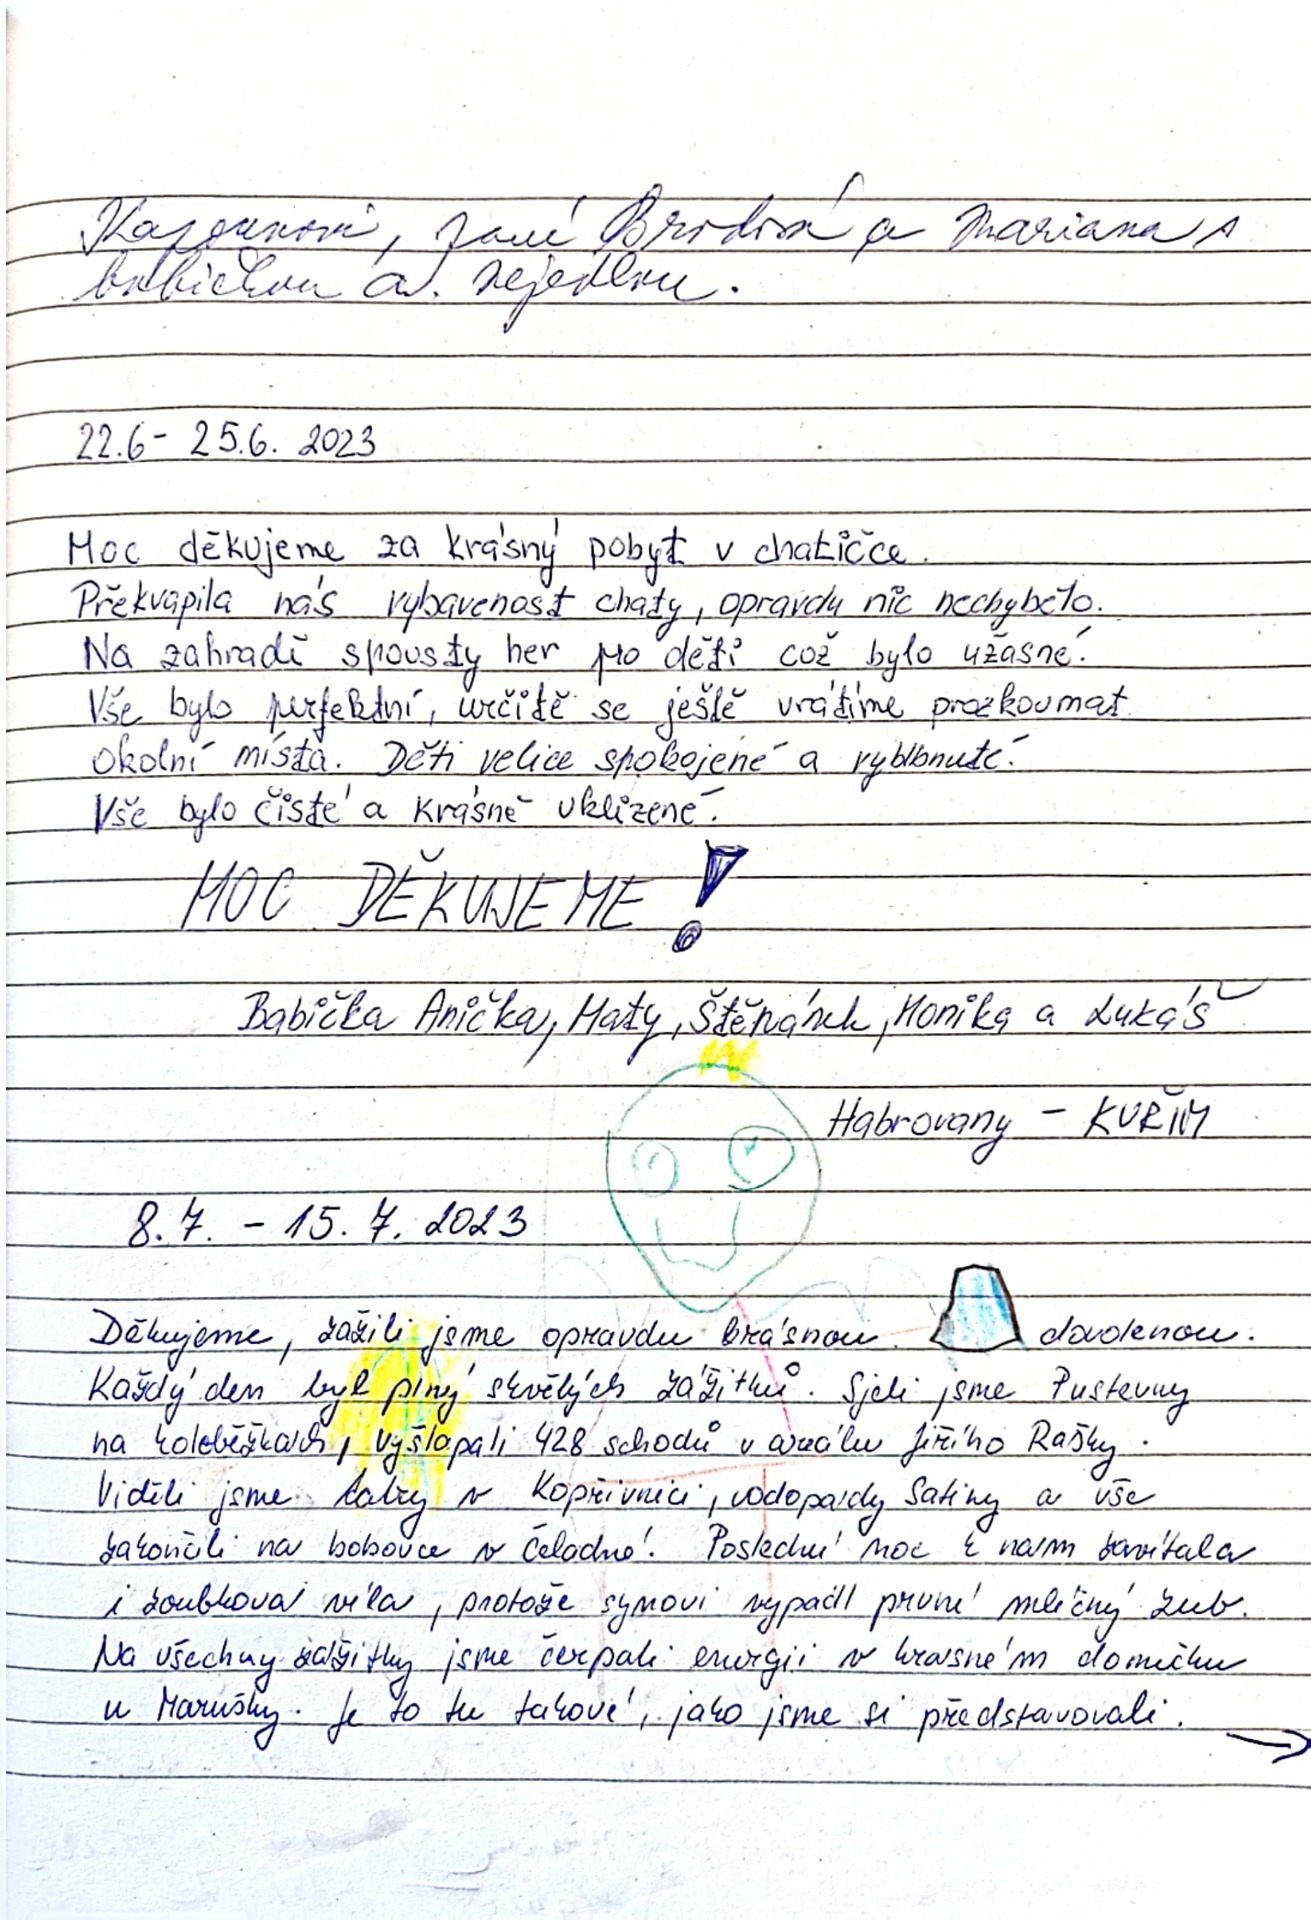 a Mariana s
babičkou a. nejedlou.
22.6- 25.6. 2023
Moc děkujeme za krásný pobyt v chatičce.
Překvapila nás vybavenost chaty, opravdu nic nechybělo.
Na zahradě spousty her pro děti což bylo úžasné.
Vše bylo perfektní, určitě se ještě vrátíme prozkoumat
okolní místa. Děti velice spokojené a vyblbnuté.
Vše bylo čisté a krásně uklizené.
MOC DĚKUJEME!
Babička Anička, Maty, Štěpánek, Monika a Lukáš
Habrovany - KUŘIM
8.7. - 15.7. 2023
Děkujeme, zažili jsme opravdu krásnou dovolenou.
Každý den byl plný skvělých zážitků. Sjeli jsme Pustevny
na koloběžkách, vyšlapali 428 schodů v areálu Jiřího Rašky.
Viděli jsme tatry v Kopřivnici, vodopády Satiny a vše
zakončili na bobovce v Čeladné. Poslední noc k nám zavítala
i zoubková víla, protože synovi vypadl první mléčný zub.
Na všechny zážitky jsme čerpali energii v krásném domečku
u Marušky. Je to tu takové, jako jsme si představovali.